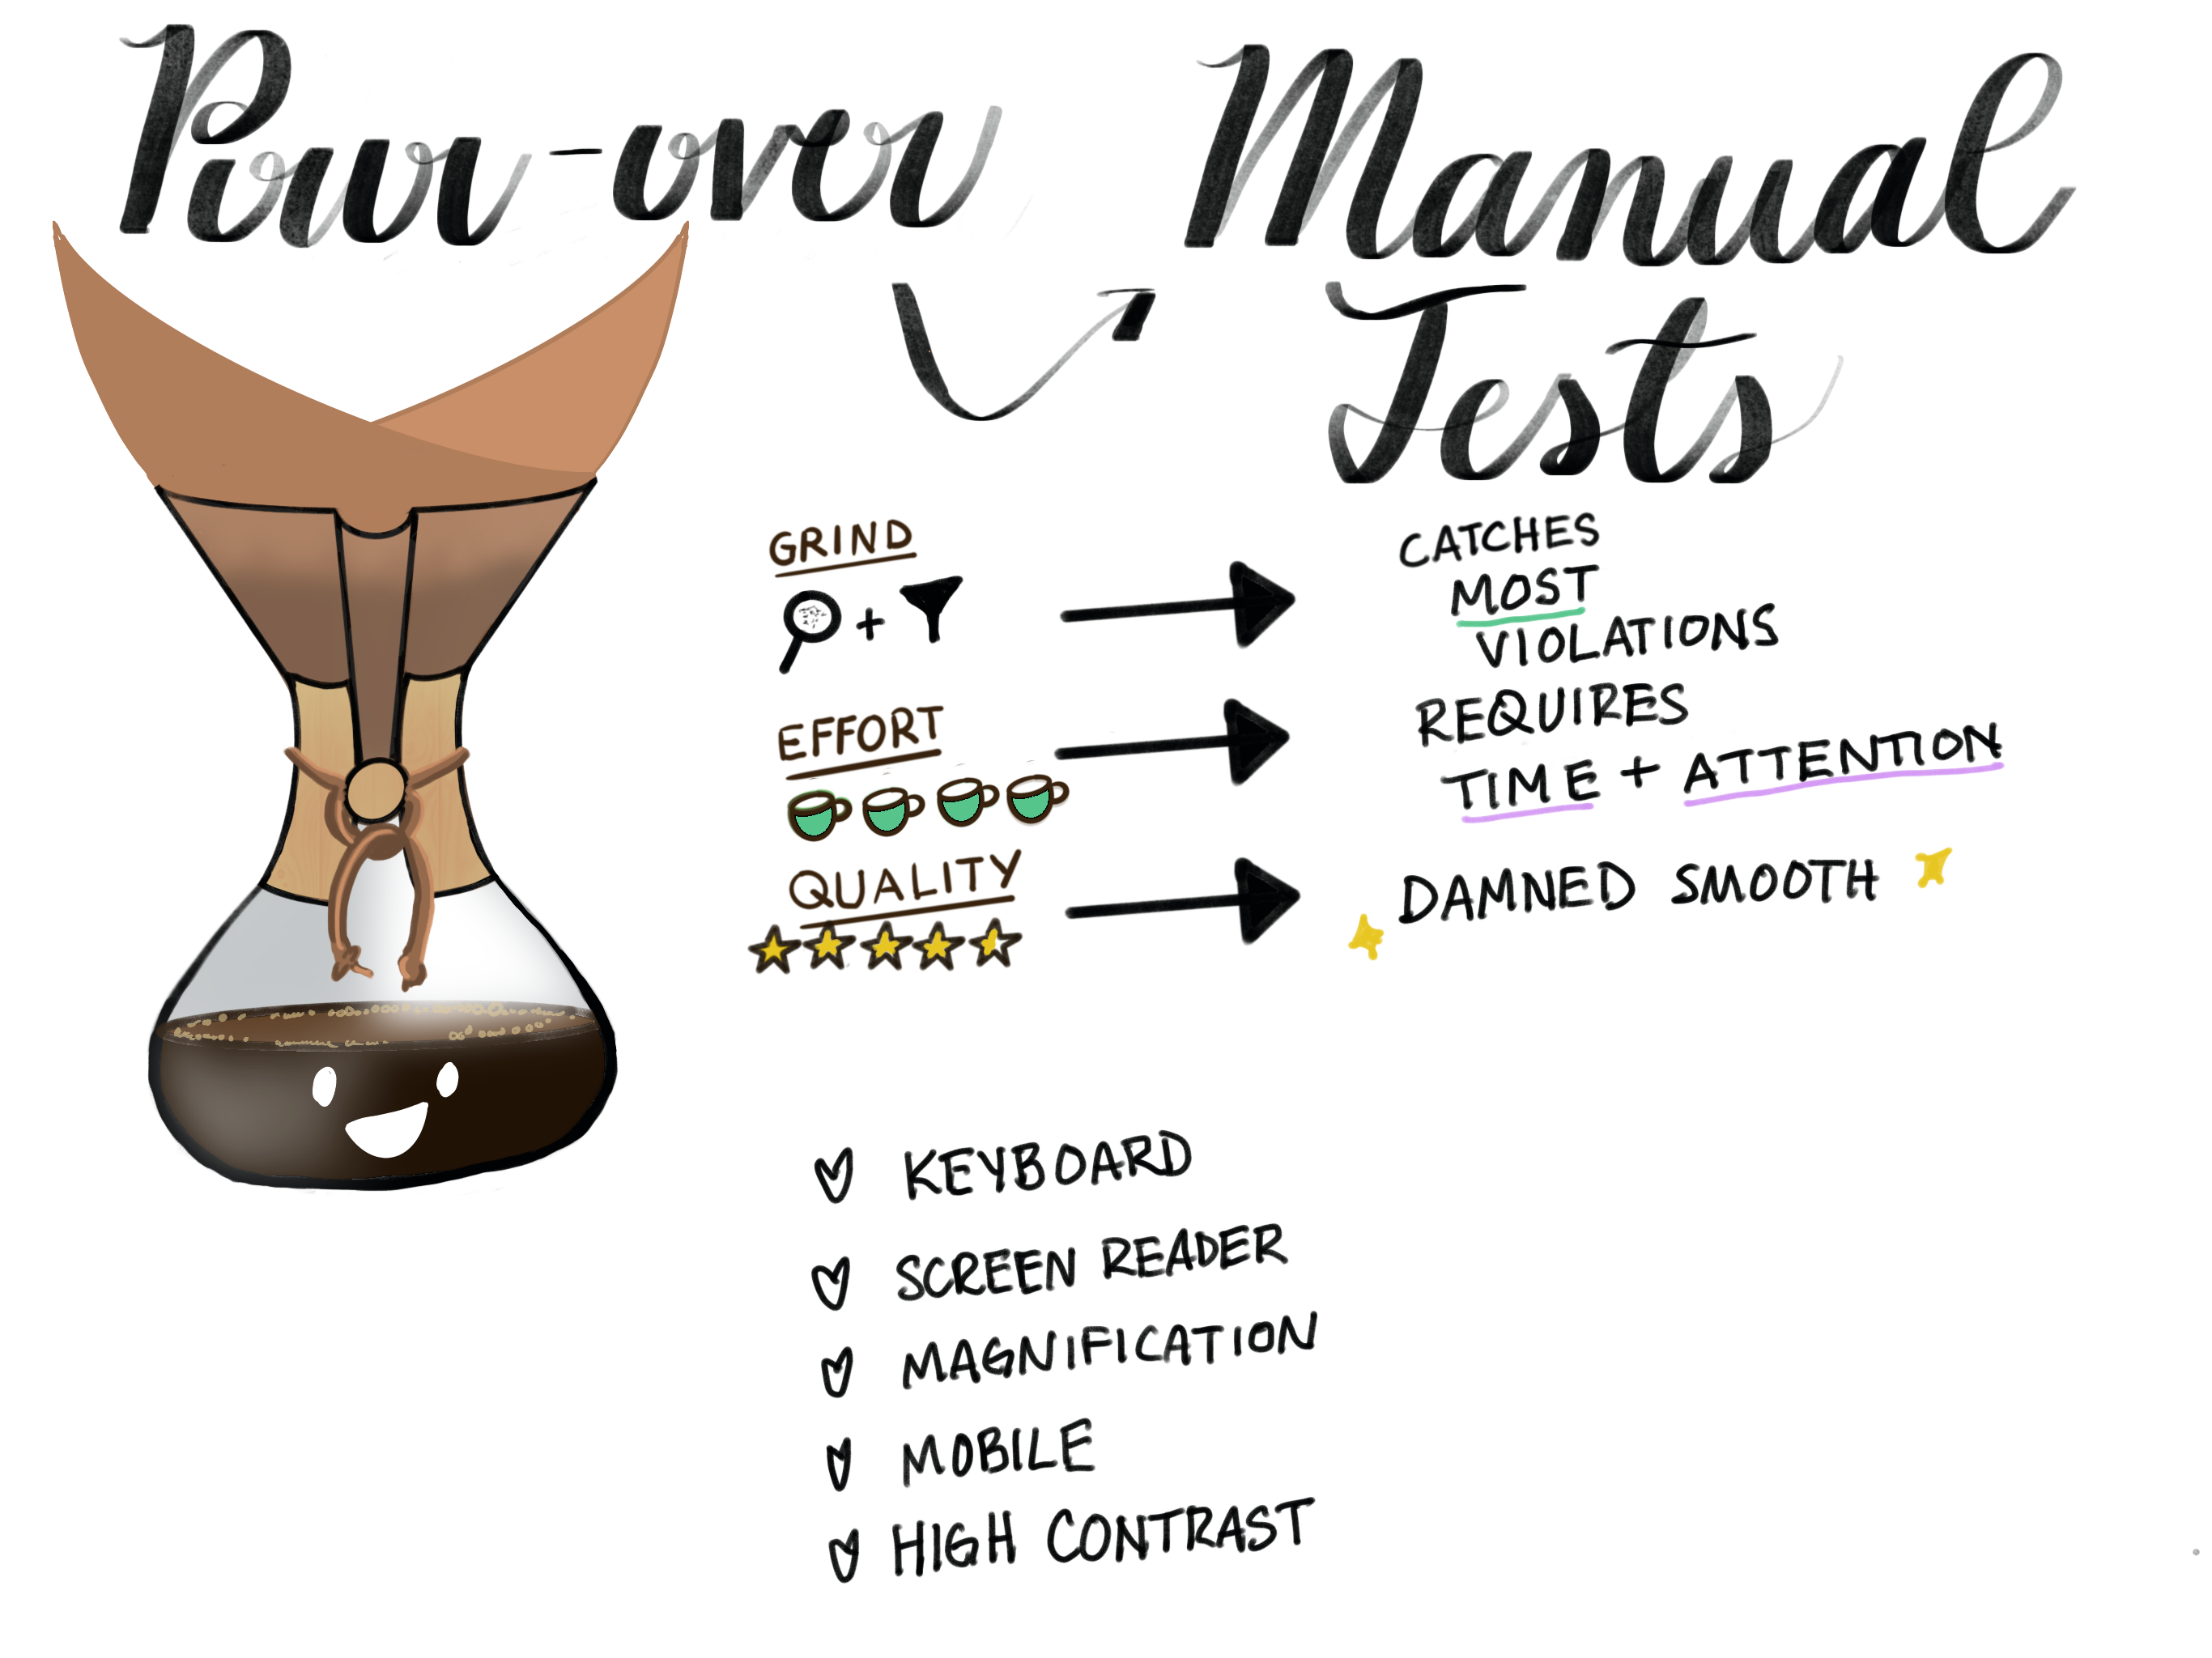 Pour-over
Manual
Tests
GRIND
+
CATCHES
MOST
VIOLATIONS
EFFORT
REQUIRES
TIME + ATTENTION
QUALITY
DAMNED SMOOTH
KEYBOARD
SCREEN READER
MAGNIFICATION
MOBILE
HIGH CONTRAST